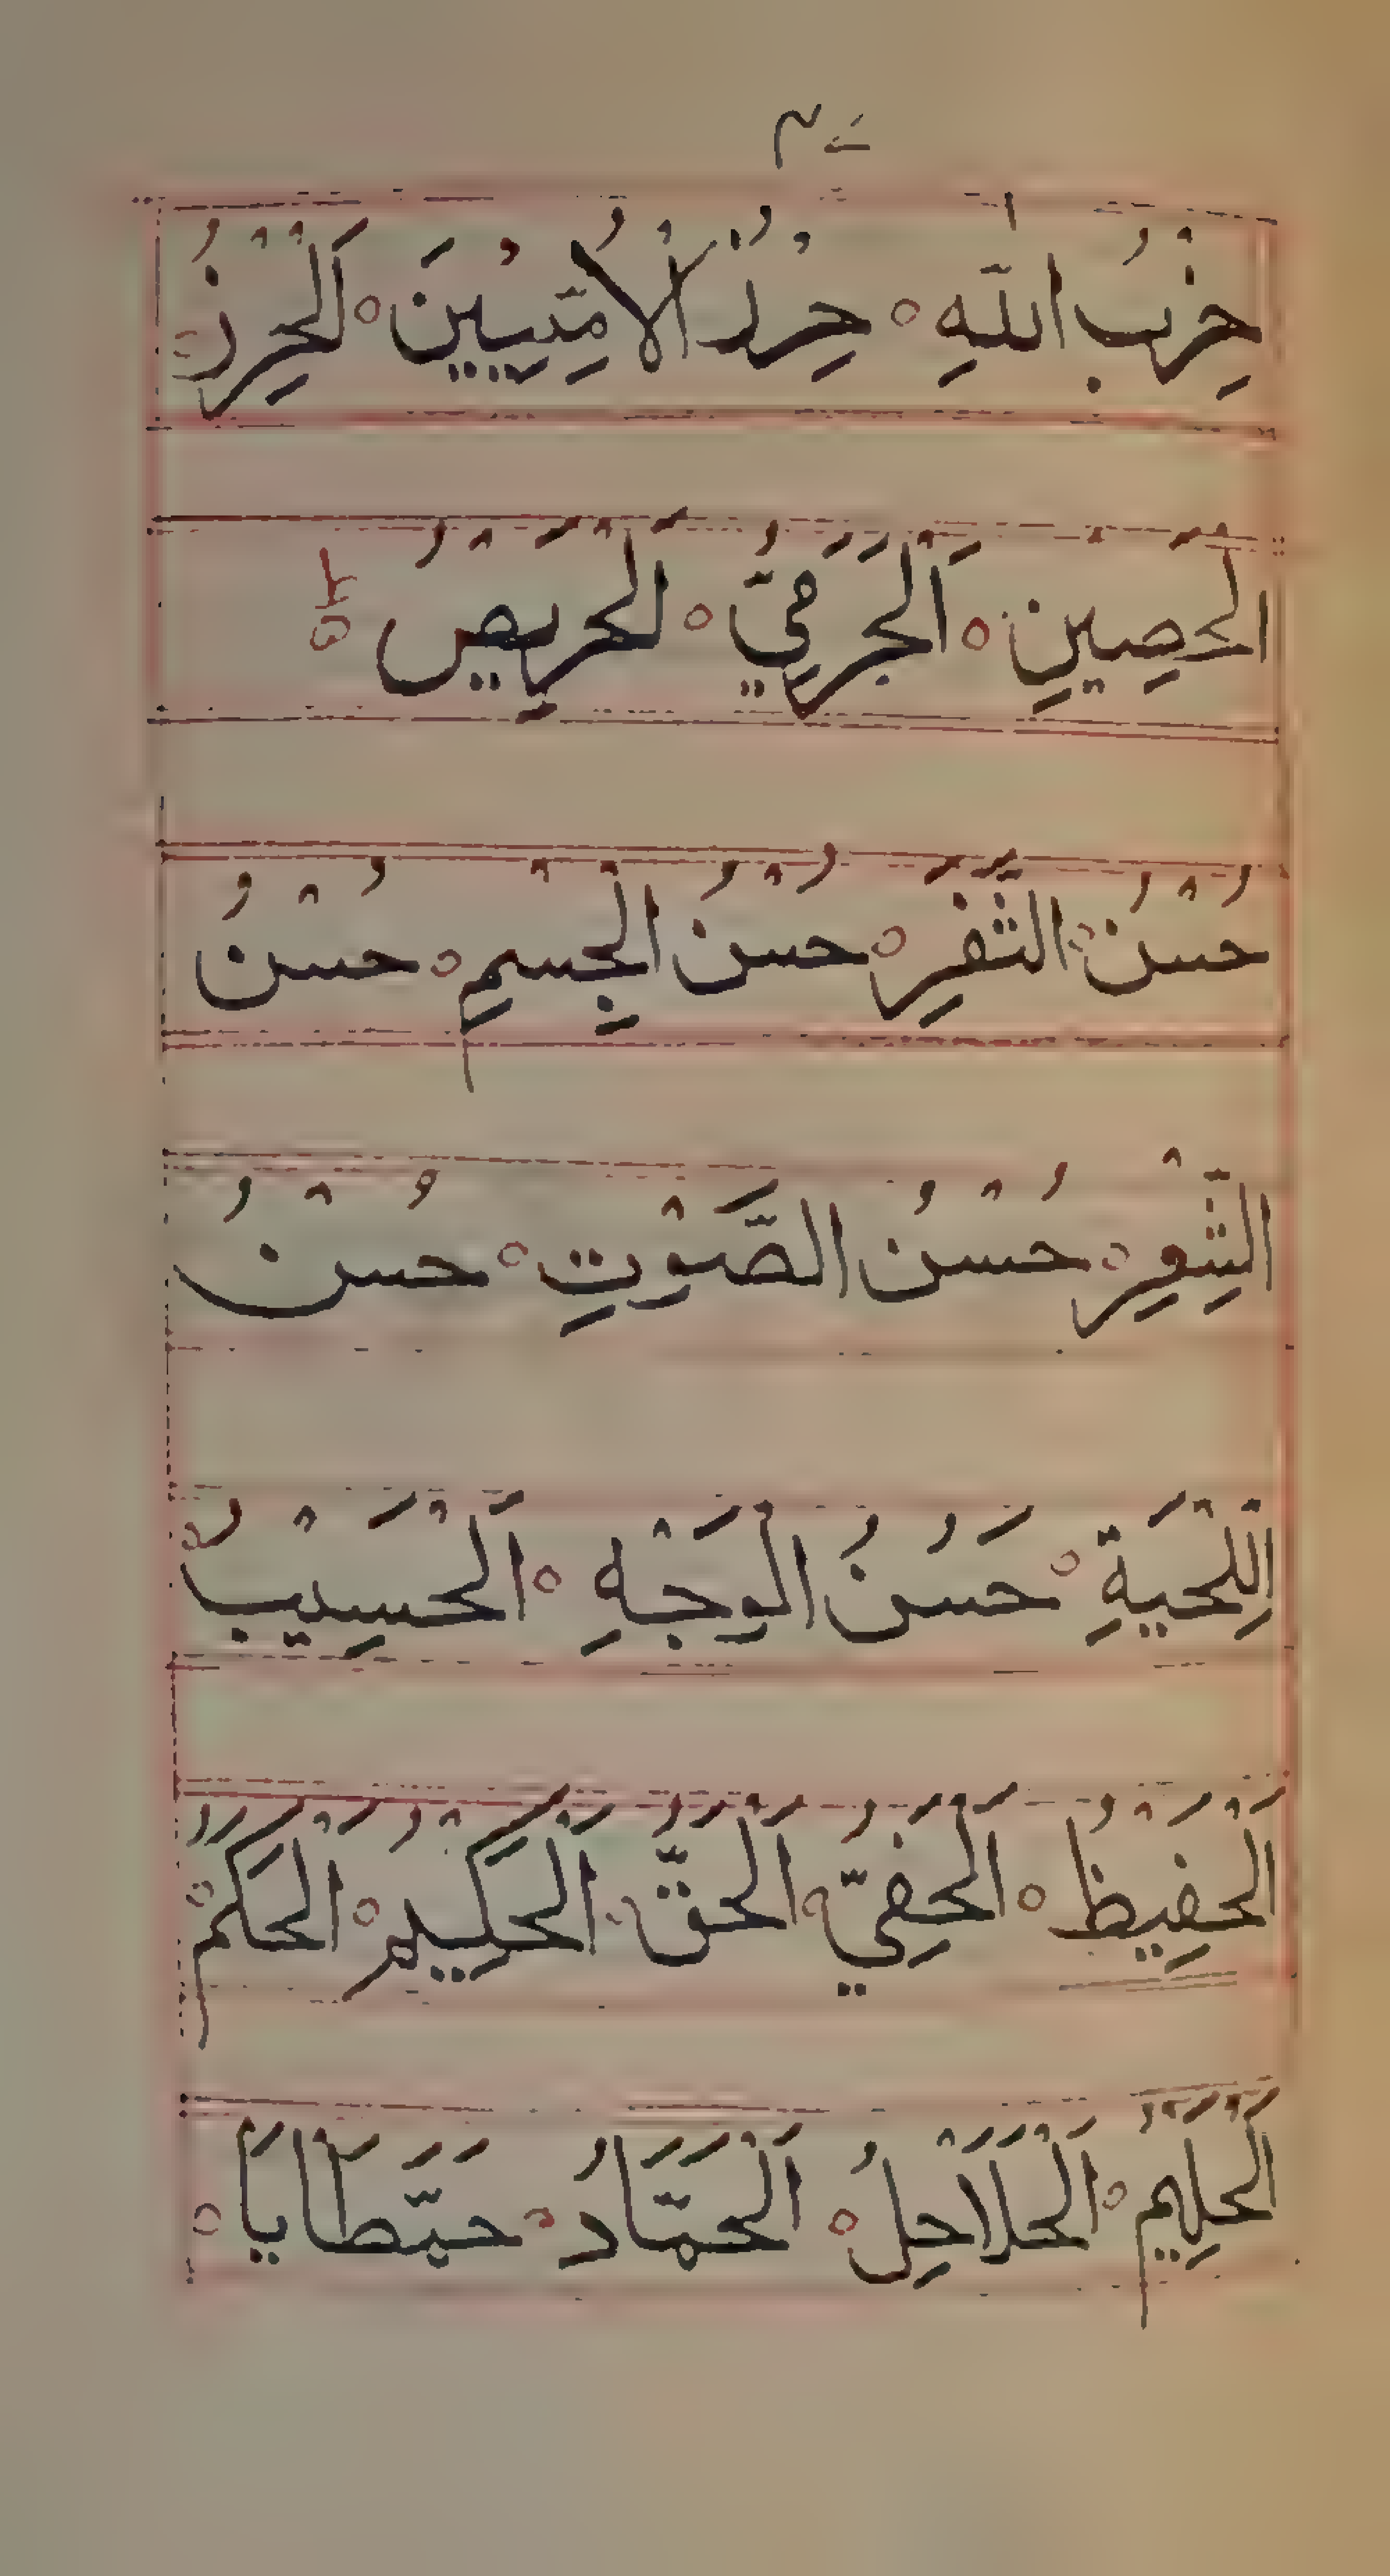 حِزْبُ اللّٰهِ ه حِرْزُ الْاُمِّيِّيْنَ ه اَلْحِرْزُ
الْحَصِيْنِ ه اَلْحَرَمِيُّ ه اَلْحَرِيْصُ ه
حُسْنُ الثَّغْرِ ه حُسْنُ الْجِسْمِ ه حُسْنُ
الشِّعْرِ ه حُسْنُ الصَّوْتِ ه حُسْنُ
اللِّحْيَةِ ه حَسُنُ الْوَجْهِ ه اَلْحَسِيْبُ ه
اَلْحَفِيْظُ ه اَلْحَفِيُّ ه اَلْحَقُّ ه اَلْحَكِيْمُ ه اَلْحَكَمُ ه
اَلْحَلِيْمُ ه اَلْحَلَاحِلُ ه اَلْحَمَّادُ ه حَمَّطَايَا ه